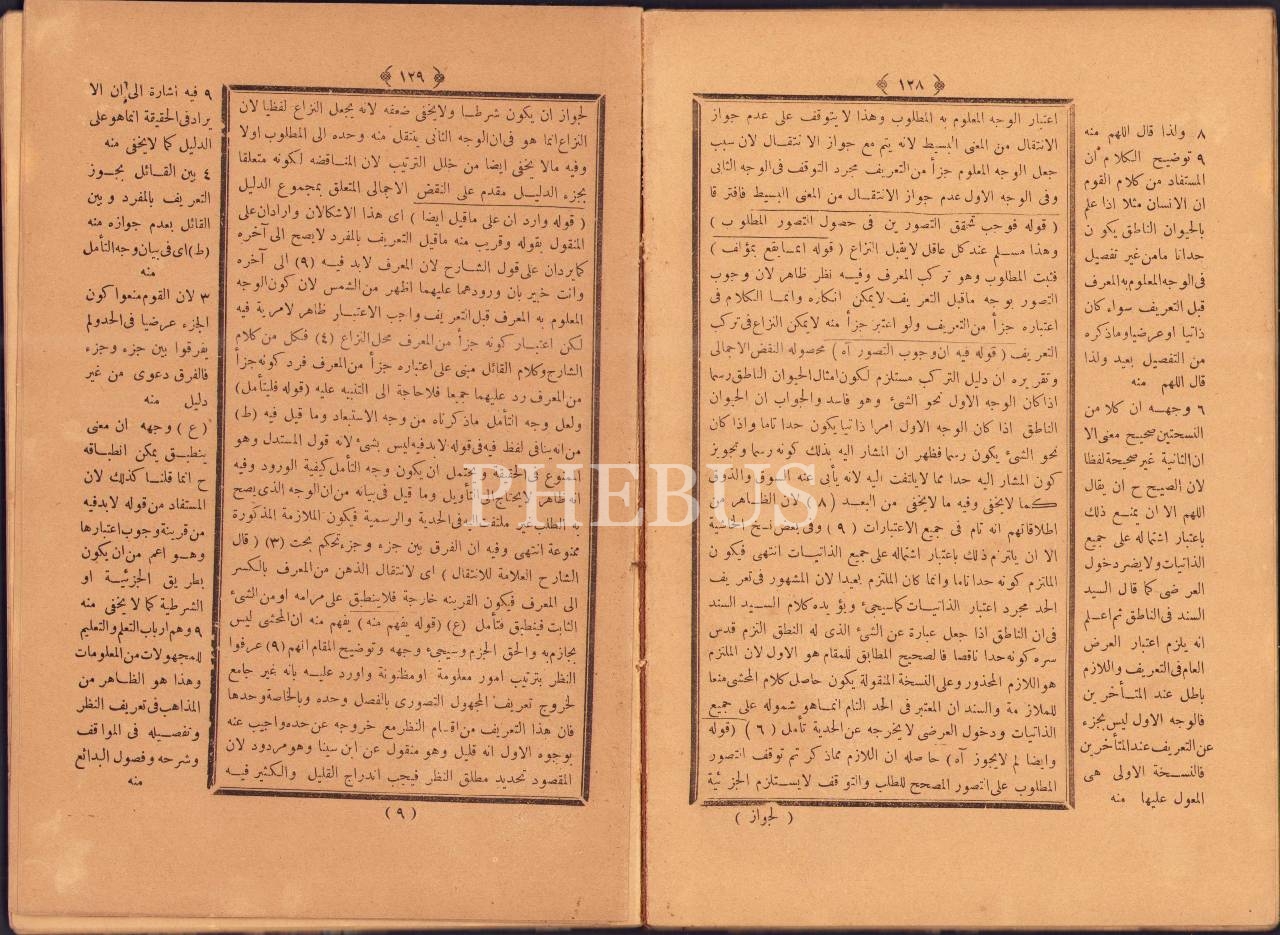 ﴿ ١٢٨ ﴾
اعتبار الوجه المعلوم به المطلوب وهذا لا يتوقف على عدم جواز
الانتقال من المعنى البسيط لانه يتم مع جواز الا نتقال لان سبب
جعل الوجه المعلوم جزأ من التعريف مجرد التوقف فى الوجه الثانى
وفى الوجه الاول عدم جواز الانتقال من المعنى البسيط فافتر قا
( قوله فوجب تحقق التصور ين فى حصول التصور المطلو ب )
وهذا مسلم عند كل عاقل لايقبل النزاع ( قوله انما يقع بمؤلف )
فثبت المطلوب وهو تر كب المعرف وفيه نظر ظاهر لان وجوب
التصور بوجه ماقبل التعر يف لايمكن انكاره وانما الكلام فى
اعتباره جزأ من التعريف ولو اعتبر جزأ منه لايمكن النزاع فى تركب
التعريف ( قوله فيه ان وجوب التصور آه ) محصوله النقض الاجمالى
وتقر يره ان دليل التركب مستلزم لكون امثال الحيوان الناطق رسما
اذا كان الوجه الاول نحو الشئ وهو فاسد والجواب ان الحيوان
الناطق اذا كان الوجه الاول امرا ذاتيا يكون حدا تاما واذا كان
نحو الشئ يكون رسما فظهر ان المشار اليه بذلك كونه رسما وتجويز
كون المشار اليه حدا مما لا يلتفت اليه لانه يأبى عنه السوق والذوق
كما لايخفى وفيه ما لايخفى من البعد ( ٨ ) لان الظاهر من
اطلاقاتهم انه تام فى جميع الاعتبارات ( ٩ ) وفى بعض نسخ الحاشية
الا ان يلتزم ذلك باعتبار اشتماله على جميع الذاتيات انتهى فيكو ن
الملتزم كونه حدا تاما وانما كان الملتزم بعيدا لان المشهور فى تعر يف
الحد مجرد اعتبار الذاتيات كما سيجئ ويؤ يده كلام السيد السند
فى ان الناطق اذا جعل عبارة عن الشئ الذى له النطق التزم قدس
سره كونه حدا ناقصا فالصحيح المطابق للمقام هو الاول لان الملتزم
هو اللازم المحذور وعلى النسخة المنقولة يكون حاصل كلام المحشى منعا
للملاز مة والسند ان المعتبر فى الحد التام انما هو شموله على جميع
الذاتيات ودخول العرضى لا يخرجه عن الحدية تأمل ( ٦ ) ( قوله
وايضا لم لايجوز آه ) حاصله ان اللازم مماذكر تم توقف التصور
المطلوب على التصور المصحح للطلب والتو قف لايستلزم الجز ئية
( لجواز )
٨ ولذا قال اللهم منه
٩ توضيح الكلام أن
المستفاد من كلام القوم
ان الانسان مثلا اذا علم
بالحيوان الناطق يكو ن
حدا تاما من غير تفصيل
فى الوجه المعلوم به المعرف
قبل التعريف سواء كان
ذاتيا او عرضيا وماذكره
من التفصيل بعيد ولذا
قال اللهم منه
٦ وجهه ان كلا من
النسختين صحيح معنى الا
ان الثانية غير صحيحة لفظا
لان الصحيح ح ان يقال
اللهم الا ان يمنع ذلك
باعتبار اشتما له على جميع
الذاتيات ولا يضر دخول
العر ضى كما قال السيد
السند فى الناطق ثم اعلم
انه يلزم اعتبار العرض
العام فى التعريف واللازم
باطل عند المتأخر ين
فالوجه الاول ليس بجزء
عن التعريف عند المتأخرين
فالنسخة الاولى هى
المعول عليها منه
﴿ ١٢٩ ﴾
لجواز ان يكون شرطا ولايخفى ضعفه لانه يجعل النزاع لفظيا لان
النزاع انما هو فى ان الوجه الثانى ينتقل منه وحده الى المطلوب اولا
وفيه مالا يخفى ايضا من خلل الترتيب لان المناقضه لكونه متعلقا
بجزء الدليل مقدم على النقض الاجمالى المتعلق بمجموع الدليل
( قوله وارد ان على ماقيل ايضا ) اى هذا الاشكالان وارادان على
المنقول بقوله وقريب منه ماقيل التعريف بالمفرد لايصح الى آخره
كما يردان على قول الشارح لان المعرف لابد فيه (٩) الى آخره
وانت خبير بان ورودهما عليهما اظهر من الشمس لان كون الوجه
المعلوم به المعرف قبل التعر يف واجب الاعتبار ظاهر لامرية فيه
لكن اعتبار كونه جزأ من المعرف محل النزاع (٤) فكل من كلام
الشارح وكلام القائل مبنى على اعتباره جزأ من المعرف فرد كونه جزأ
من المعرف رد عليهما جميعا فلا حاجة الى التنبيه عليه (قوله فليتأمل)
ولعل وجه التأمل ماذكرناه من وجه الاستبعاد وما قيل فيه (ط)
من انه ينافى لفظ فيه فى قوله لابد فيه ليس بشئ لانه قول المستدل وهو
الممنوع فى الحقيقه ويحتمل ان يكون وجه التأمل كيفية الورود وفيه
انه ظاهر لايحتاج الى التأويل وما قيل فى بيانه من ان الوجه الذى يصح
به الطلب غير ملتفت اليه فى الحدية والرسمية فيكون الملازمة المذكورة
ممنوعة انتهى وفيه ان الفرق بين جزء وجزء تحكم بحت (٣) ( قال
الشارح العلامة للانتقال ) اى لانتقال الذهن من المعرف بالكسر
الى المعرف فيكون القرينه خارجة فلا ينطبق على مرامه او من الشئ
الثابت فينطبق فتأمل (ع) (قوله يفهم منه ) يفهم منه ان المحشى ليس
بجازم به والحق الجزم وسيجئ وجهه وتوضيح المقام انهم (٩) عرفوا
النظر بترتيب امور معلومة او مظنونة واورد عليه بانه غير جامع
لخروج تعريف المجهول التصورى بالفصل وحده وبالخاصة وحدها
فان هذا التعريف من اقسام النظر مع خروجه عن حده واجيب عنه
بوجوه الاول انه قليل وهو منقول عن ابن سينا وهو مردود لان
المقصود تحديد مطلق النظر فيجب اندراج القليل والكثير فيه
( ٩ )
٩ فيه اشارة الى ان الا
يراد فى الحقيقة انما هو على
الدليل كما لايخفى منه
٤ بين القائل بجوز
التعر يف بالمفرد و بين
القائل بعدم جوازه منه
(ط) اى فى بيان وجه التأمل
منه
٣ لان القوم منعوا كون
الجزء عرضيا فى الحد ولم
يفرقوا بين جزء وجزء
فالفرق دعوى من غير
دليل منه
(ع) وجهه ان معنى
ينطبق يمكن انطباقه
ح انما قلنا كذلك لان
المستفاد من قوله لابد فيه
من قرينة وجوب اعتبارها
وهو اعم من ان يكون
بطر يق الجزئية او
الشرطية كما لا يخفى منه
٩ وهم ارباب التعلم والتعليم
للمجهولات من المعلومات
وهذا هو الظاهر من
المذاهب فى تعريف النظر
وتفصيله فى المواقف
وشرحه وفصول البدائع
منه
PHEBUS